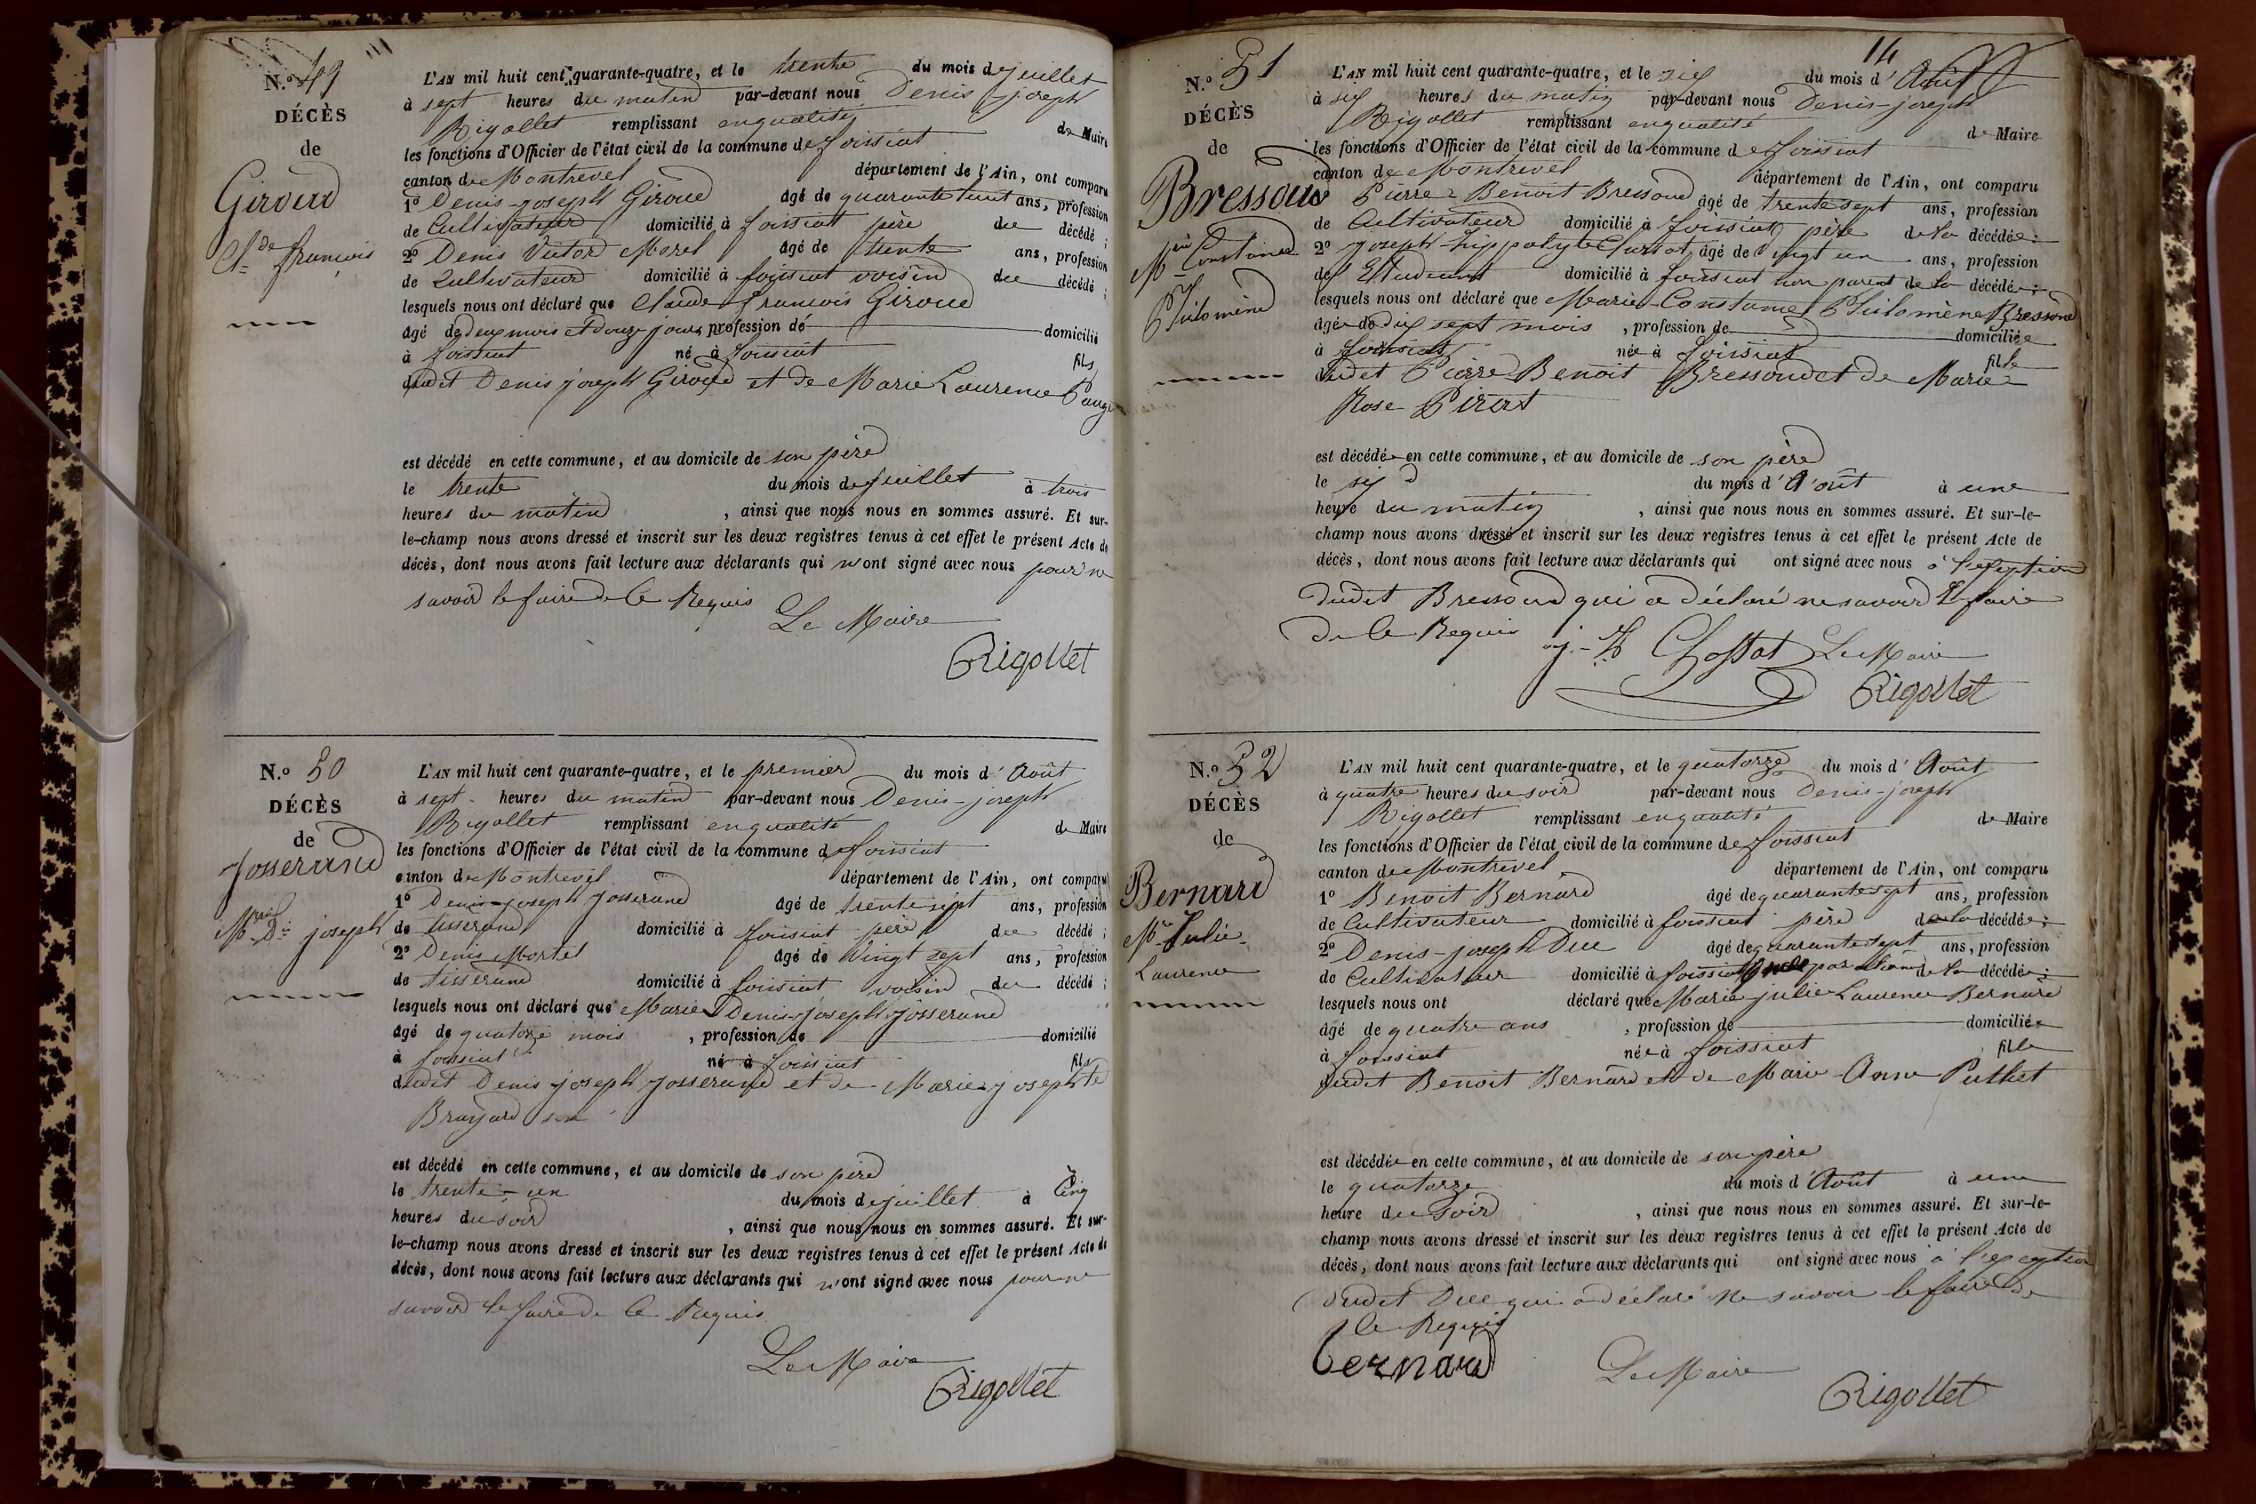 N.° 49
DÉCÈS
de
Giroud
Cl.de françois
L'AN mil huit cent quarante-quatre, et le trente du mois de juillet
à sept heures du matin par-devant nous Denis joseph
Rigollet remplissant en qualité de Maire
les fonctions d'Officier de l'état civil de la commune de foissiat
canton de Montrevel département de l'Ain, ont comparu
1° Denis-joseph Giroud âgé de quarante huit ans, profession
de Cultivateur domicilié à foissiat père du décédé ;
2° Denis Victor Morel âgé de trente ans, profession
de Cultivateur domicilié à foissiat voisin du décédé ;
lesquels nous ont déclaré que Claude françois Giroud
âgé de deux mois et douze jours profession de domicilié
à foissiat né à foissiat fils
dudit Denis joseph Giroud et de Marie Laurence
est décédé en cette commune, et au domicile de son père
le trente du mois de juillet à trois
heures du matin , ainsi que nous nous en sommes assuré. Et sur-
le-champ nous avons dressé et inscrit sur les deux registres tenus à cet effet le présent Acte de
décès, dont nous avons fait lecture aux déclarants qui n'ont signé avec nous pour ne
savoir le faire de ce Requis
Le Maire
Rigollet
N.° 50
DÉCÈS
de
Josserand
M.rie D.is joseph
L'AN mil huit cent quarante-quatre, et le premier du mois d' Août
à sept heures du matin par-devant nous Denis-joseph
Rigollet remplissant en qualité de Maire
les fonctions d'Officier de l'état civil de la commune de foissiat
canton de Montrevel département de l'Ain, ont comparu
1° Denis-joseph Josserand âgé de trente sept ans, profession
de tisserand domicilié à foissiat père du décédé ;
2° Denis Mortel âgé de vingt sept ans, profession
de tisserand domicilié à foissiat voisin du décédé ;
lesquels nous ont déclaré que Marie Denis-joseph josserand
âgé de quatorze mois , profession de domicilié
à foissiat né à foissiat fils
dudit Denis joseph Josserand et de Marie josephte
Brayard
est décédé en cette commune, et au domicile de son père
le trente-un du mois de juillet à Cinq
heures du soir , ainsi que nous nous en sommes assuré. Et sur-
le-champ nous avons dressé et inscrit sur les deux registres tenus à cet effet le présent Acte de
décès, dont nous avons fait lecture aux déclarants qui n'ont signé avec nous pour ne
savoir le faire de ce Requis
Le Maire
Rigollet
14
N.° 51
DÉCÈS
de
Bressoud
M.rie Constance
Philomène
L'AN mil huit cent quarante-quatre, et le six du mois d' Août
à six heures du matin par-devant nous Denis-joseph
Rigollet remplissant en qualité de Maire
les fonctions d'Officier de l'état civil de la commune de foissiat
canton de Montrevel département de l'Ain, ont comparu
1° Pierre Benoit Bressoud âgé de trente sept ans, profession
de Cultivateur domicilié à foissiat père de la décédée ;
2° Joseph-hyppolyte Chossat âgé de vingt un ans, profession
de Etudiant domicilié à foissiat non parent de la décédée ;
lesquels nous ont déclaré que Marie-Constance Philomène Bressoud
âgée de dix sept mois , profession de domiciliée
à foissiat née à foissiat fille
dudit Pierre Benoit Bressoud et de Marie
Rose Pirat
est décédée en cette commune, et au domicile de son père
le six du mois d' Août à une
heure du matin , ainsi que nous nous en sommes assuré. Et sur-le-
champ nous avons dressé et inscrit sur les deux registres tenus à cet effet le présent Acte de
décès, dont nous avons fait lecture aux déclarants qui ont signé avec nous à l'exeption
dudit Bressoud qui a déclaré ne savoir le faire
de ce Requis j.-h Chossat Le Maire
Rigollet
N.° 52
DÉCÈS
de
Bernard
M.rie Julie
Laurence
L'AN mil huit cent quarante-quatre, et le quatorze du mois d' Août
à quatre heures du soir par-devant nous Denis-joseph
Rigollet remplissant en qualité de Maire
les fonctions d'Officier de l'état civil de la commune de foissiat
canton de Montrevel département de l'Ain, ont comparu
1° Benoit Bernard âgé de quarante sept ans, profession
de Cultivateur domicilié à foissiat père de la décédée ;
2° Denis-joseph Duc âgé de quarante sept ans, profession
de Cultivateur domicilié à foissiat oncle par alliance de la décédée ;
lesquels nous ont déclaré que Marie julie Laurence Bernard
âgé de quatre ans , profession de domiciliée
à foissiat née à foissiat fille
dudit Benoit Bernard et de Marie-Anne Puthet
est décédée en cette commune, et au domicile de son père
le quatorze du mois d' Août à une
heure du soir , ainsi que nous nous en sommes assuré. Et sur-le-
champ nous avons dressé et inscrit sur les deux registres tenus à cet effet le présent Acte de
décès, dont nous avons fait lecture aux déclarants qui ont signé avec nous à l'exception
dudit Duc qui a déclaré ne savoir le faire de
ce Requis
bernard Le Maire
Rigollet